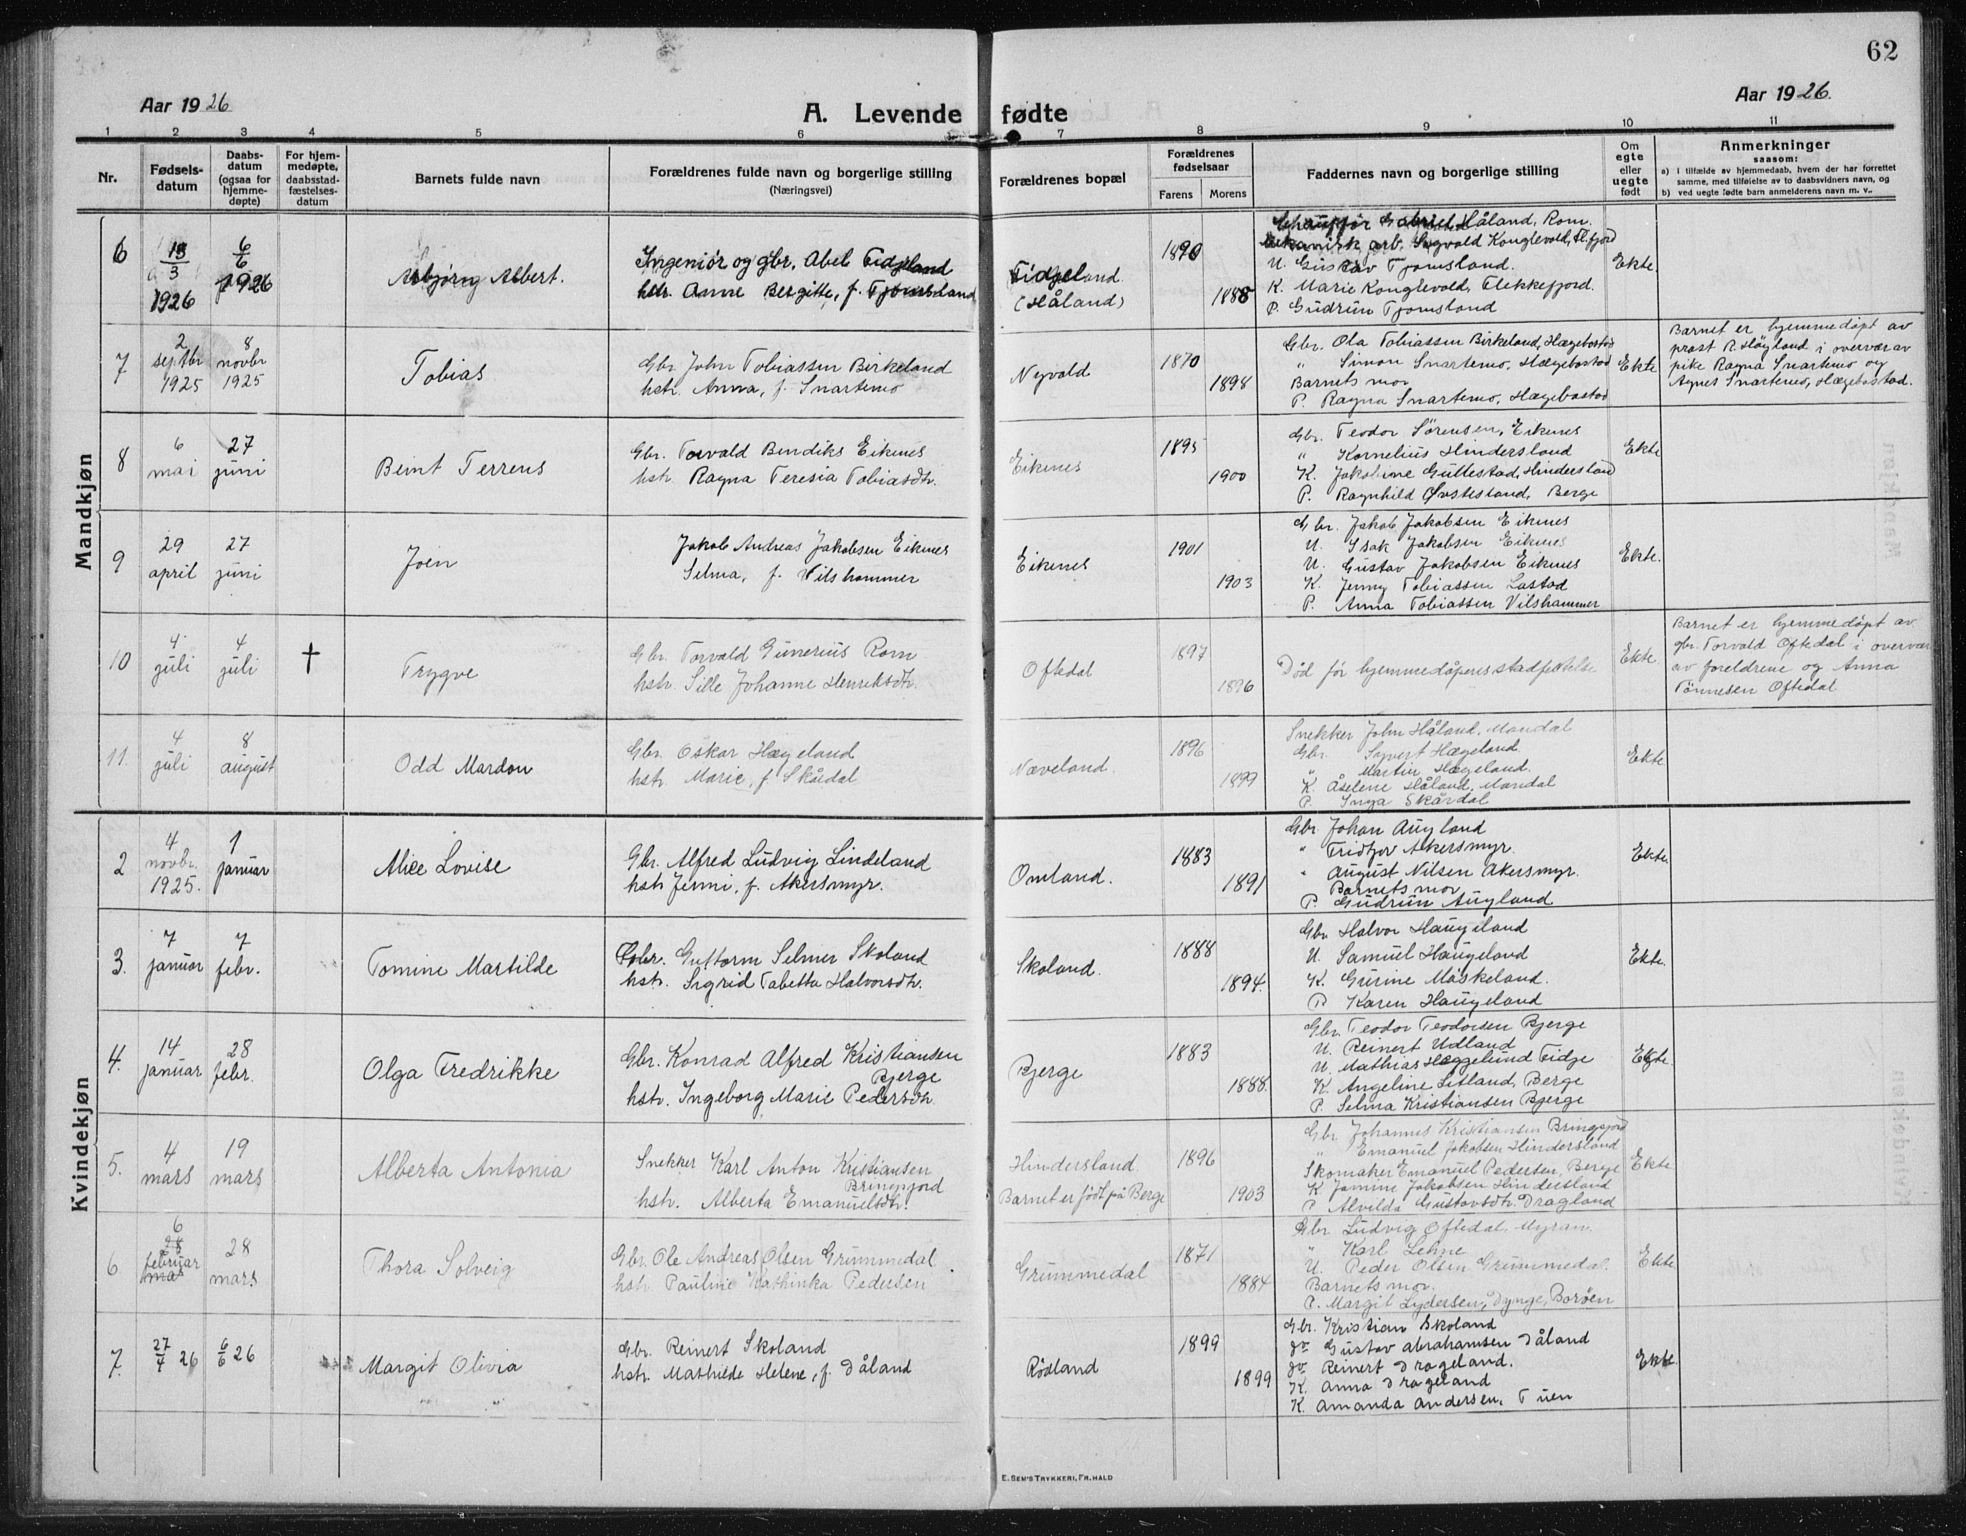 62
Aar 1926
A. Levende fødte
Aar 1926.
1 2 3 4 5 6 7 8 9 10 11
Nr.
Fødsels-
datum
Daabs-
datum
(ogsaa for
hjemme-
døpte)
For hjem-
medøpte,
daabsstad-
fæstelses-
datum
Barnets fulde navn
Forældrenes fulde navn og borgerlige stilling
(Næringsvei)
Forældrenes bopæl
Forældrenes
fødselsaar
Farens Morens
Faddernes navn og borgerlige stilling
Om
egte
eller
uegte
født
Anmerkninger
saasom:
a) I tilfælde av hjemmedaab, hvem der har forrettet
samme, med tilføielse av to daabsvidners navn, og
b) ved uegte fødte barn anmelderens navn m. v..
Mandkjøn
6
13/3
1926
6/6
1926
Asbjørn Albert.
Ingeniør og gbr. Abel Fidjeland
hstr. Anne Bergitte, f. Tjomsland
Fidjeland
(Håland)
1890
1888
Chauffør Gabriel Håland, Rom.
Mekanisk arb. Sigvald Konglevold, Fl.fjord
U. Gustav Tjomsland.
K. Marie Konglevold, Flekkefjord.
P. Gudrun Tjomsland
Ekte.
7
2
septbr
1925
8
novbr
1925
Tobias
Gbr. John Tobiassen Birkeland
hstr. Anna, f. Snartemo
Nyvold
1870
1898
Gbr. Ola Tobiassen Birkeland, Hægebostad
" Simon Snartemo, Hægebostad
Barnets mor
P. Ragna Snartemo, Hægebostad
Ekte
Barnet er hjemmedøpt av
prost R. Høyland i overvær av
pike Ragna Snartemo og
Agnes Snartemo, Hægebostad.
8
6
mai
27
juni
Beint Terrens
Gbr. Torvald Bendiks Eikenes
hstr. Ragna Teresia Tobiasdtr.
Eikenes
1895
1900
Gbr. Teodor Sørensen, Eikenes
" Kornelius Hindersland
K. Jakobine Gullestad, Hindersland
P. Ragnhild Øvstesland, Berge
Ekte
9
29
april
27
juni
Joen
Jakob Andreas Jakobsen Eikenes
Selma, f. Vilshammer
Eikenes
1901
1903
Gbr. Jakob Jakobsen Eikenes
U. Isak Jakobsen Eikenes
U. Gustav Jakobsen Eikenes
K. Jenny Tobiassen Lastad
P. Anna Tobiassen Vilshammer
Ekte.
10
4
juli
4
juli
†
Trygve
Gbr. Torvald Gunerius Rom
hstr. Sille Johanne Henriksdtr.
Oftedal
1897
1896
Død før hjemmedåpens stadfestelse
Ekte.
Barnet er hjemmedøpt av
gbr. Torvald Oftedal i overvær
av foreldrene og Anna
Tønnesen Oftedal
11.
4
juli
8
august
Odd Mardon
Gbr. Oskar Hægeland
hstr. Marie, f. Skårdal
Næveland.
1896
1899
Snekker John Håland, Mandal
Gbr. Sigvert Hægeland
" Martin Hægeland.
K. Åselene Håland, Mandal
P. Inga Skårdal
Ekte
Kvindekjøn
2
4
novbr.
1925.
1
januar
Alice Lovise
Gbr. Alfred Ludvig Lindeland
hstr. Jenni, f. Akersmyr.
Omland.
1883
1891
Gbr Johan Augland
" Fridtjov Akersmyr.
" August Nilsen Akersmyr.
Barnets mor
P. Gudrun Augland
Ekte.
3.
7
januar
7
febr.
Tomine Martilde
Gbr. Guttorm Selmer Skoland
hstr. Sigrid Tabetta Halvorsdtr.
Skoland.
1888
1894.
Gbr Halvor Haugeland
U. Samuel Haugeland
K. Gurine Måskeland.
P. Karen Haugeland
Ekte.
4.
14
januar
28
febr.
Olga Fredrikke
Gbr. Konrad Alfred Kristiansen
Bjerge
hstr. Ingeborg Marie Pedersdtr.
Bjerge
1883
1888.
Gbr. Teodor Teodorsen Bjerge
U. Reinert Udland
U. Mathias Heggelund Fidje
K. Angeline Setland, Berge
P. Selma Kristiansen Bjerge
Ekte.
5.
4
mars
19
mars
Alberta Antonia
Snekker Karl Anton Kristiansen
Bringsjord
hstr. Alberta Emanuelsdtr.
Hindersland.
Barnet er født på Berge
1896
1903
Gbr. Johannes Kristiansen Bringsjord
" Emanuel Jakobsen Hindersland
Skomaker Emanuel Pedersen, Berge
K Jomine Jakobsen Hindersland
P. Alvilda Gustavsdtr. Dragland
Ekte
6.
6
28
februar
mars
28
mars
Thora Solveig
Gbr. Ole Andreas Olsen Grummedal
hstr. Pauline Kathinka Pedersen
Grummedal
1871
1884
Gbr Ludvig Oftedal, Myran.
" Karl Lehne
U. Peder Olsen Grummedal.
Barnets mor.
P. Margit Lydersen, Dynge, Borøen
Ekte
7.
27/4 26
6/6 26
Margit Olivia
Gbr. Reinert Skoland
hstr. Mathilde Helene, f. Dåland
Rødland
1899
1899
Gbr. Kristian Skoland
go Gustav Abrahamsen Dåland
go Reinert Drageland.
K. Anna Drageland
K. Amanda Andersen, Tuen
Ekte
E. SEM'S TRYKKERI, FR.HALD